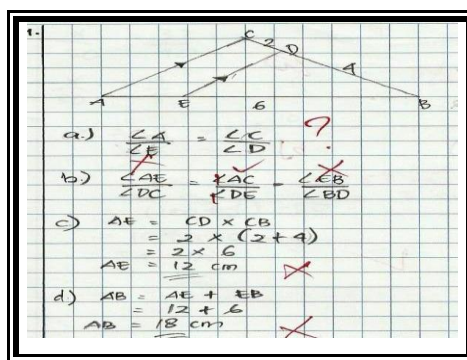 1.
C
2
D
4
A
E
6
B
a.) ∠A/∠E = ∠C/∠D ?
b.) ∠AE/∠DC = ∠AC/∠DE = ∠EB/∠BD
c) AE = CD × CB
= 2 × (2+4)
= 2 × 6
AE = 12 cm
d) AB = AE + EB
= 12 + 6
AB = 18 cm